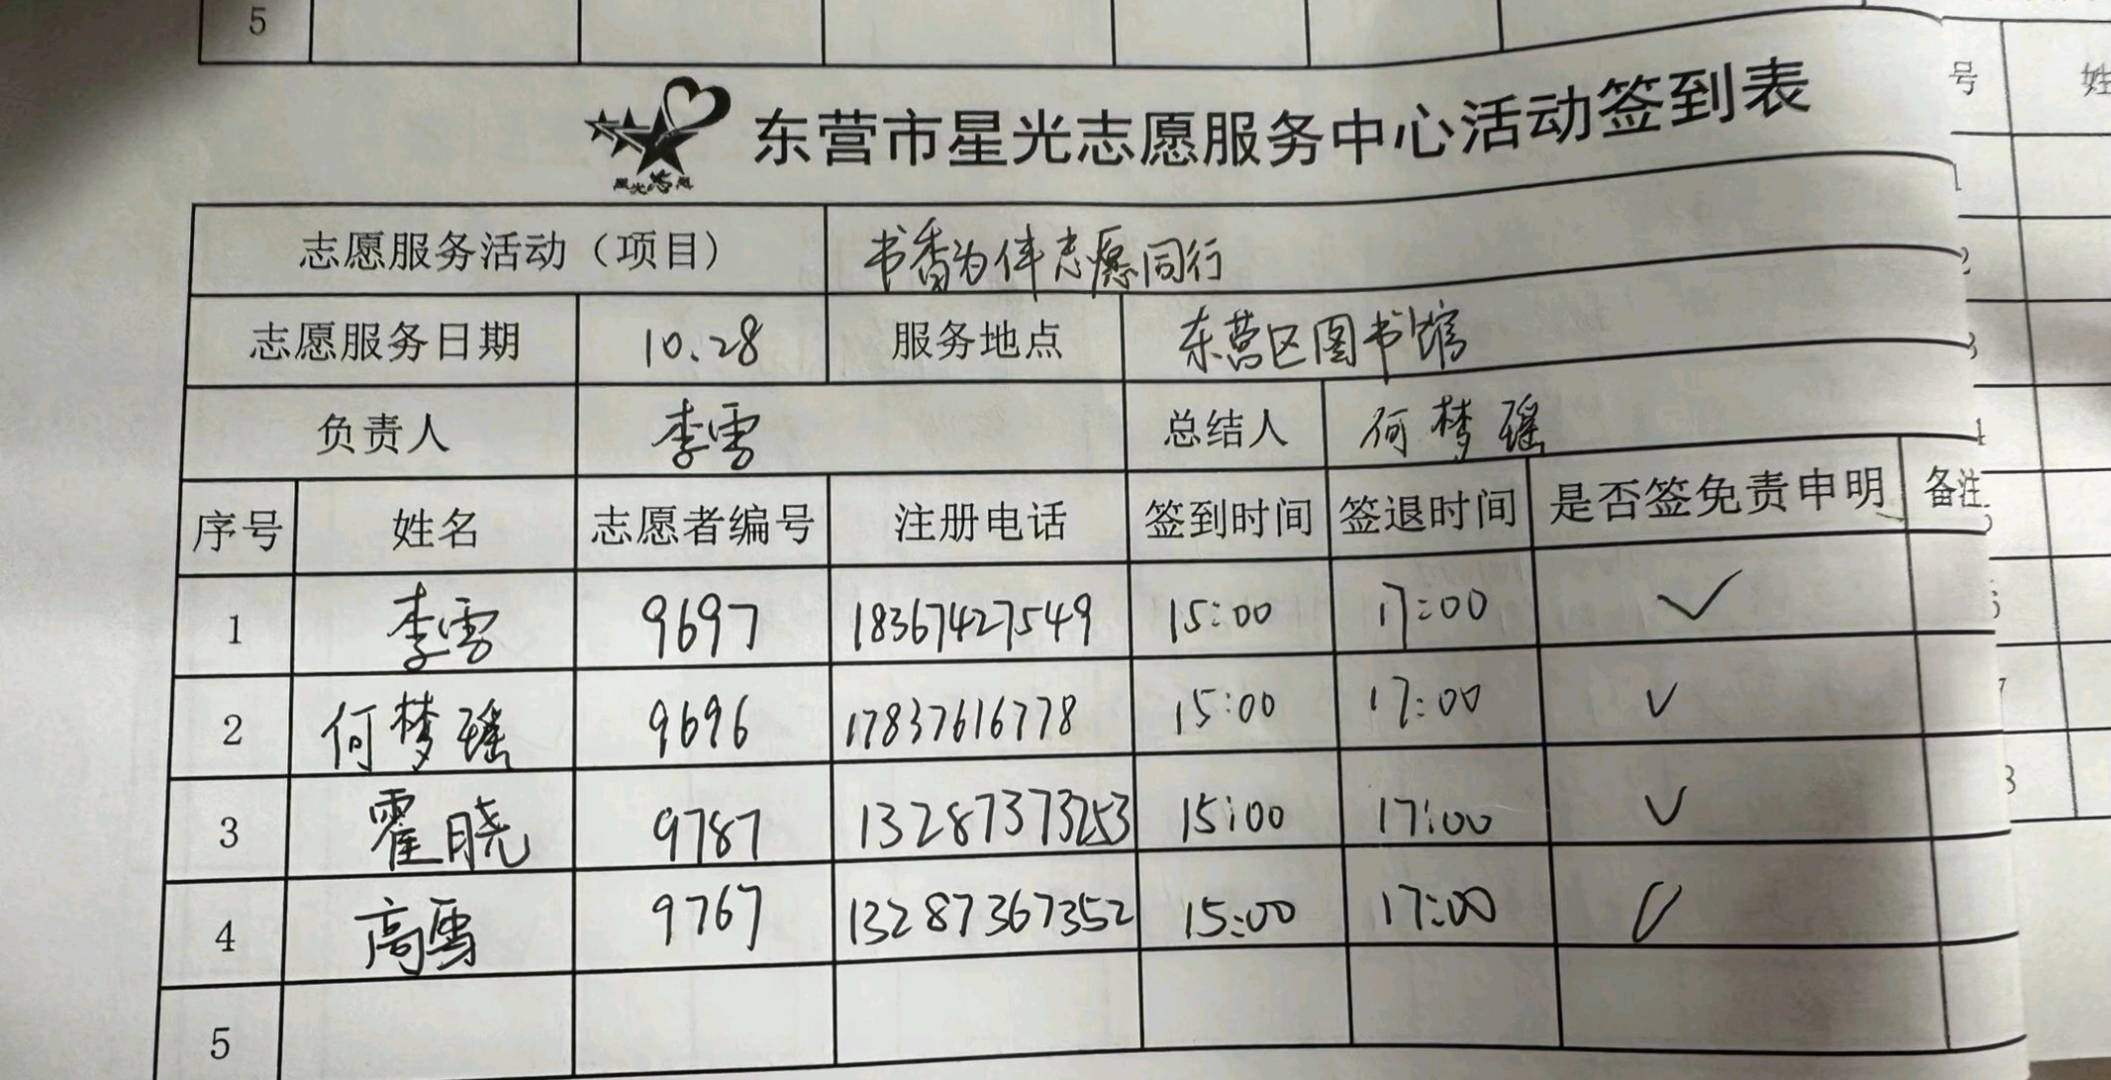 5
号 姓
星光志愿
东营市星光志愿服务中心活动签到表
志愿服务活动（项目） 书香为伴志愿同行
志愿服务日期 10.28 服务地点 东营区图书馆
负责人 李雪 总结人 何梦瑶
序号 姓名 志愿者编号 注册电话 签到时间 签退时间 是否签免责申明 备注
1 李雪 9697 18367427549 15:00 17:00 ✓
2 何梦瑶 9696 17837616778 15:00 17:00 ✓
3 霍晓 9787 13287373253 15:00 17:00 ✓
4 高雪 9767 13287367352 15:00 17:00 ✓
5